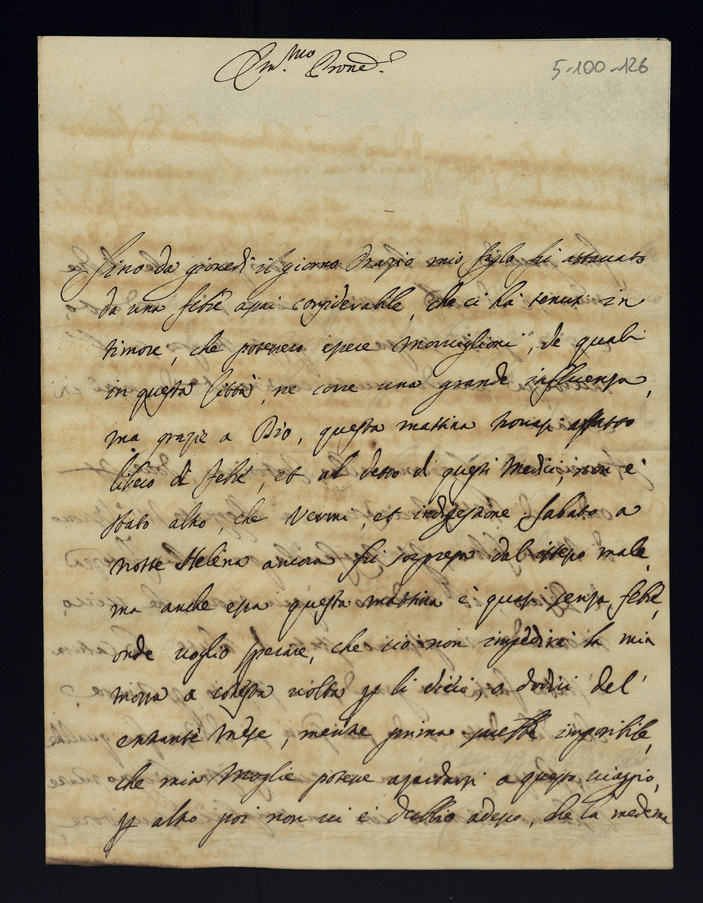 5-100-126
Em.mo Proned.e
Sino da giovedi il giorno Orazio mio figlo fu attaccato
da una febre assai considerabile, che ci há tenuti in
timore, che potessero essere Morviglioni, de quali
in questa Città, ne corre una grande influenza,
ma grazie a Dio, questa mattina trovasi affatto
libero di febre, et al detto di questi Medici, non é
stato altro, che Vermi, et indigestione. Sabato a
notte Helena ancora fu sorpresa dal istesso male,
ma anche essa questa mattina é quasi senza febre,
onde voglio sperare, che ció non impedirá la mia
mossa a cotesta volta p li dieci, o dodici del'
entrante Mese, mentre prima impossibile,
che mia Moglie potesse a questo viaggio,
p altro poi non vi é dubbio adesso, che la medema